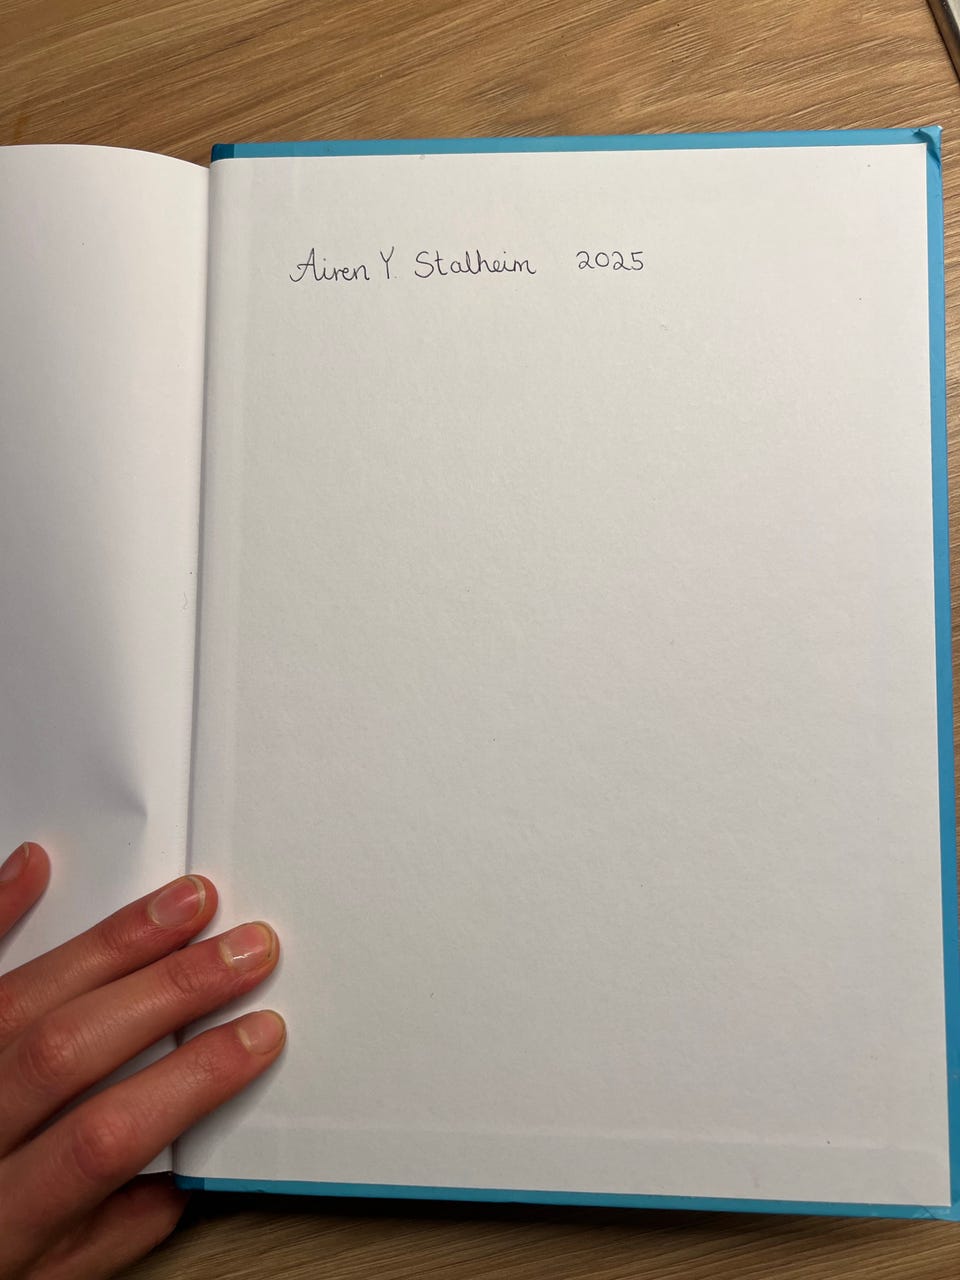 Airen Y. Stalheim 2025